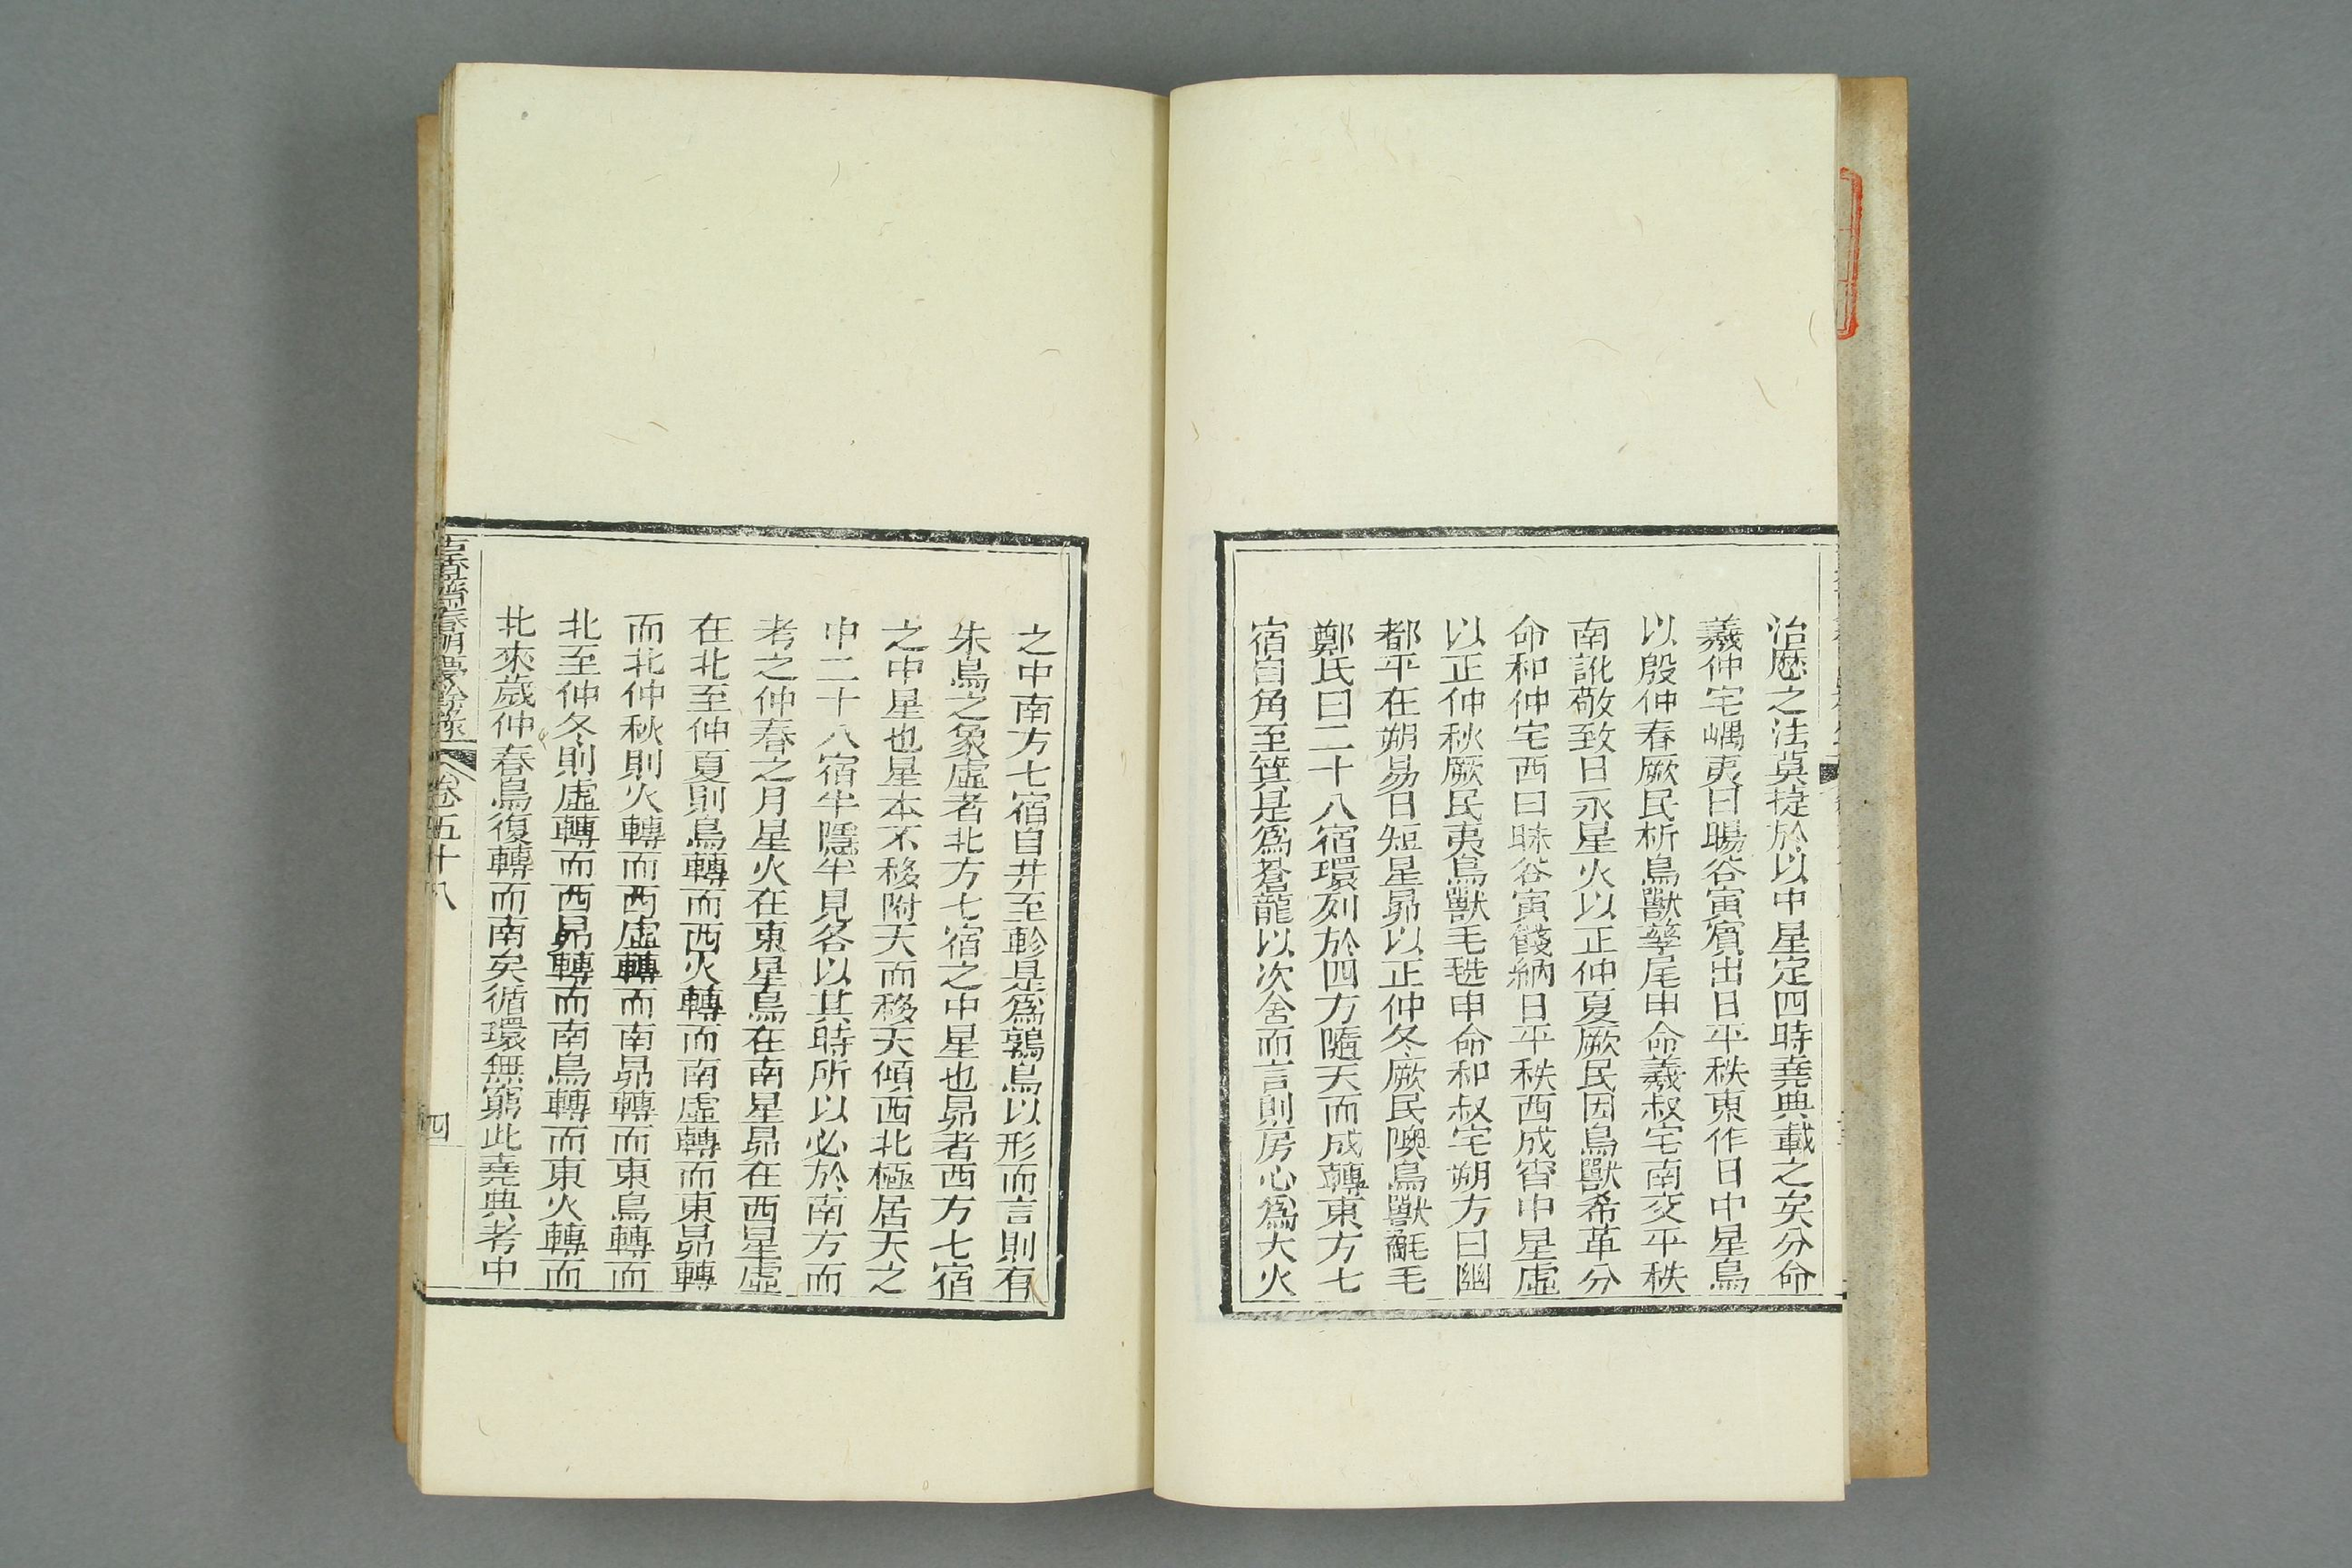 治歷之法莫捷於以中星定四時堯典載之矣分命
羲仲宅嵎夷曰暘谷寅賓出日平秩東作日中星鳥
以殷仲春厥民析鳥獸孳尾申命羲叔宅南交平秩
南訛敬致日永星火以正仲夏厥民因鳥獸希革分
命和仲宅西曰昧谷寅餞納日平秩西成宵中星虛
以正仲秋厥民夷鳥獸毛毨申命和叔宅朔方曰幽
都平在朔易日短星昴以正仲冬厥民隩鳥獸氄毛
鄭氏曰二十八宿環列於四方隨天而成轉東方七
宿自角至箕是爲蒼龍以次舍而言則房心爲大火
之中南方七宿自井至軫是爲鶉鳥以形而言則有
朱鳥之象虛者北方七宿之中星也昴者西方七宿
之中星也星本不移附天而移天傾西北極居天之
中二十八宿半隱半見各以其時所以必於南方而
考之仲春之月星火在東星鳥在南星昴在西星虛
在北至仲夏則鳥轉而西火轉而南虛轉而東昴轉
而北仲秋則火轉而西虛轉而南昴轉而東鳥轉而
北至仲冬則虛轉而西昴轉而南鳥轉而東火轉而
北來歲仲春鳥復轉而南矣循環無窮此堯典考中
古香齋春明夢餘錄
卷五十八
四